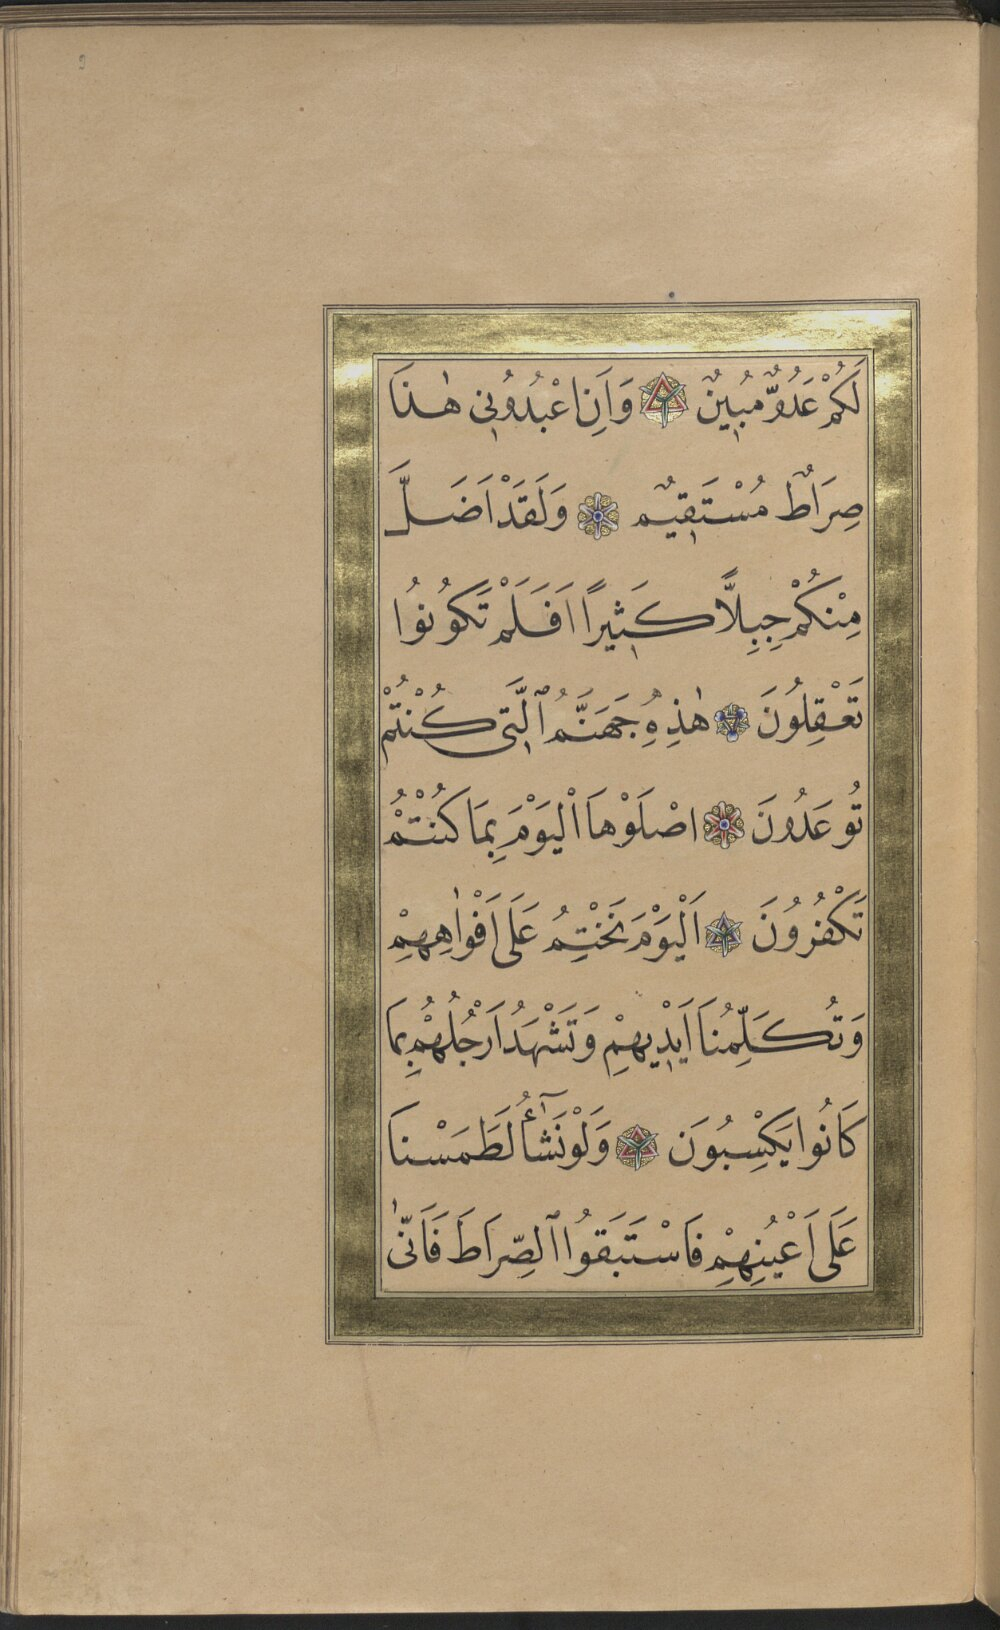 لَكُمْ عَدُوٌّ مُبِينٌ وَاَنِ اعْبُدُونِي هٰذَا
صِرَاطٌ مُسْتَقِيمٌ وَلَقَدْ اَضَلَّ
مِنْكُمْ جِبِلًّا كَثِيرًا اَفَلَمْ تَكُونُوا
تَعْقِلُونَ هٰذِهِ جَهَنَّمُ ٱلَّتِي كُنْتُمْ
تُوعَدُونَ اصْلَوْهَا الْيَوْمَ بِمَا كُنْتُمْ
تَكْفُرُونَ اَلْيَوْمَ نَخْتِمُ عَلَى اَفْوَاهِهِمْ
وَتُكَلِّمُنَا اَيْدِيهِمْ وَتَشْهَدُ اَرْجُلُهُمْ بِمَا
كَانُوا يَكْسِبُونَ وَلَوْ نَشَٓاءُ لَطَمَسْنَا
عَلَى اَعْيُنِهِمْ فَاسْتَبَقُوا ٱلصِّرَاطَ فَاَنّٰى